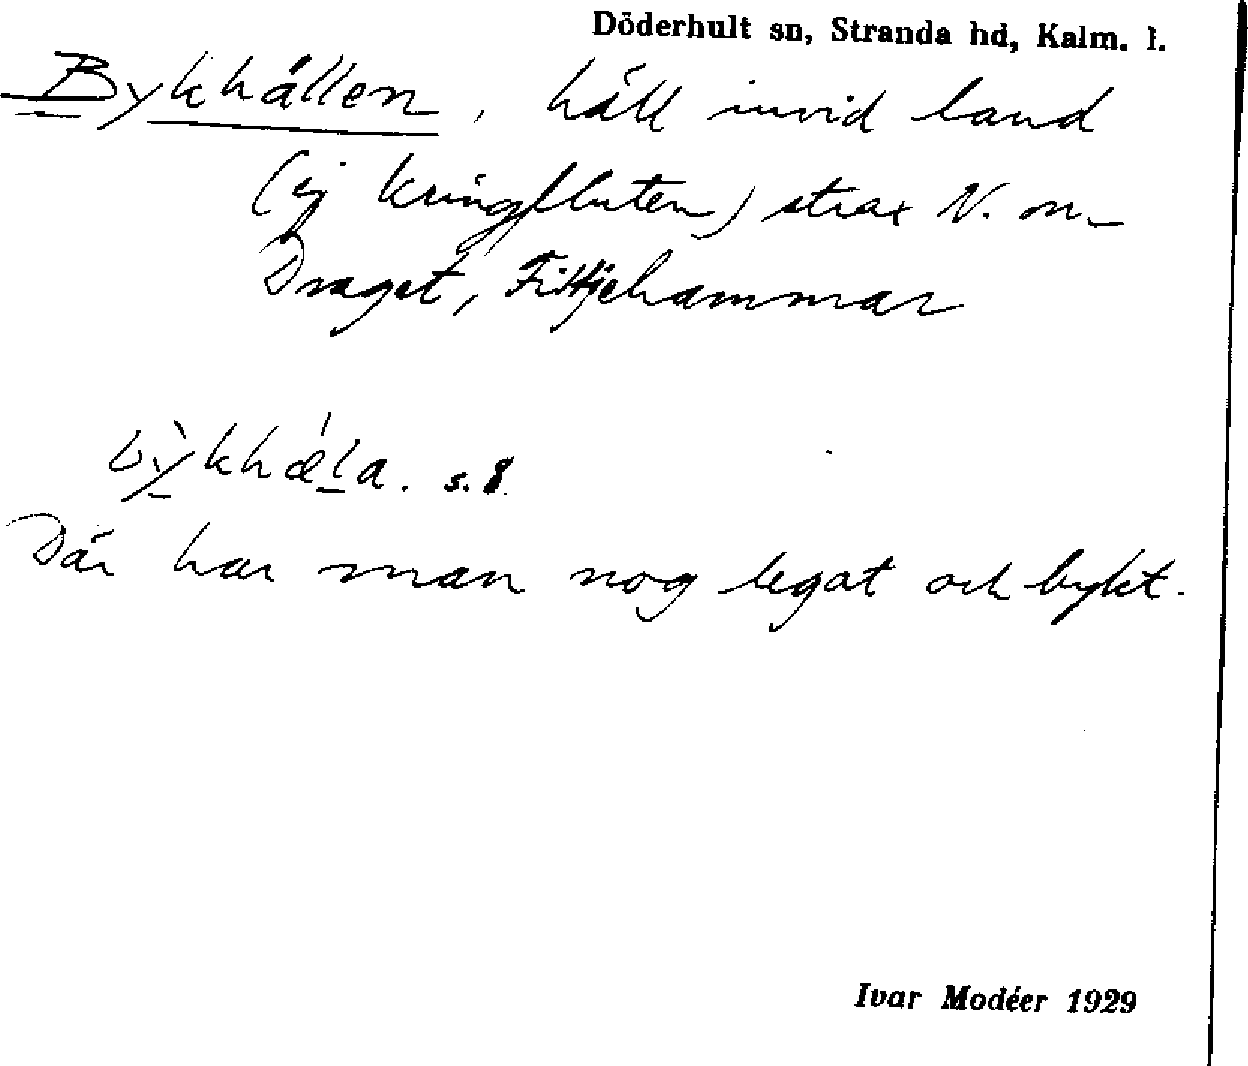 Döderhult sn, Stranda hd, Kalm. l.
Bykhällen, häll invid land
(ej kringfluten) strax N. om
Draget, Fittjehammar
bỳkhǽla. s. 8.
Där har man nog legat och bykt.
Ivar Modéer 1929